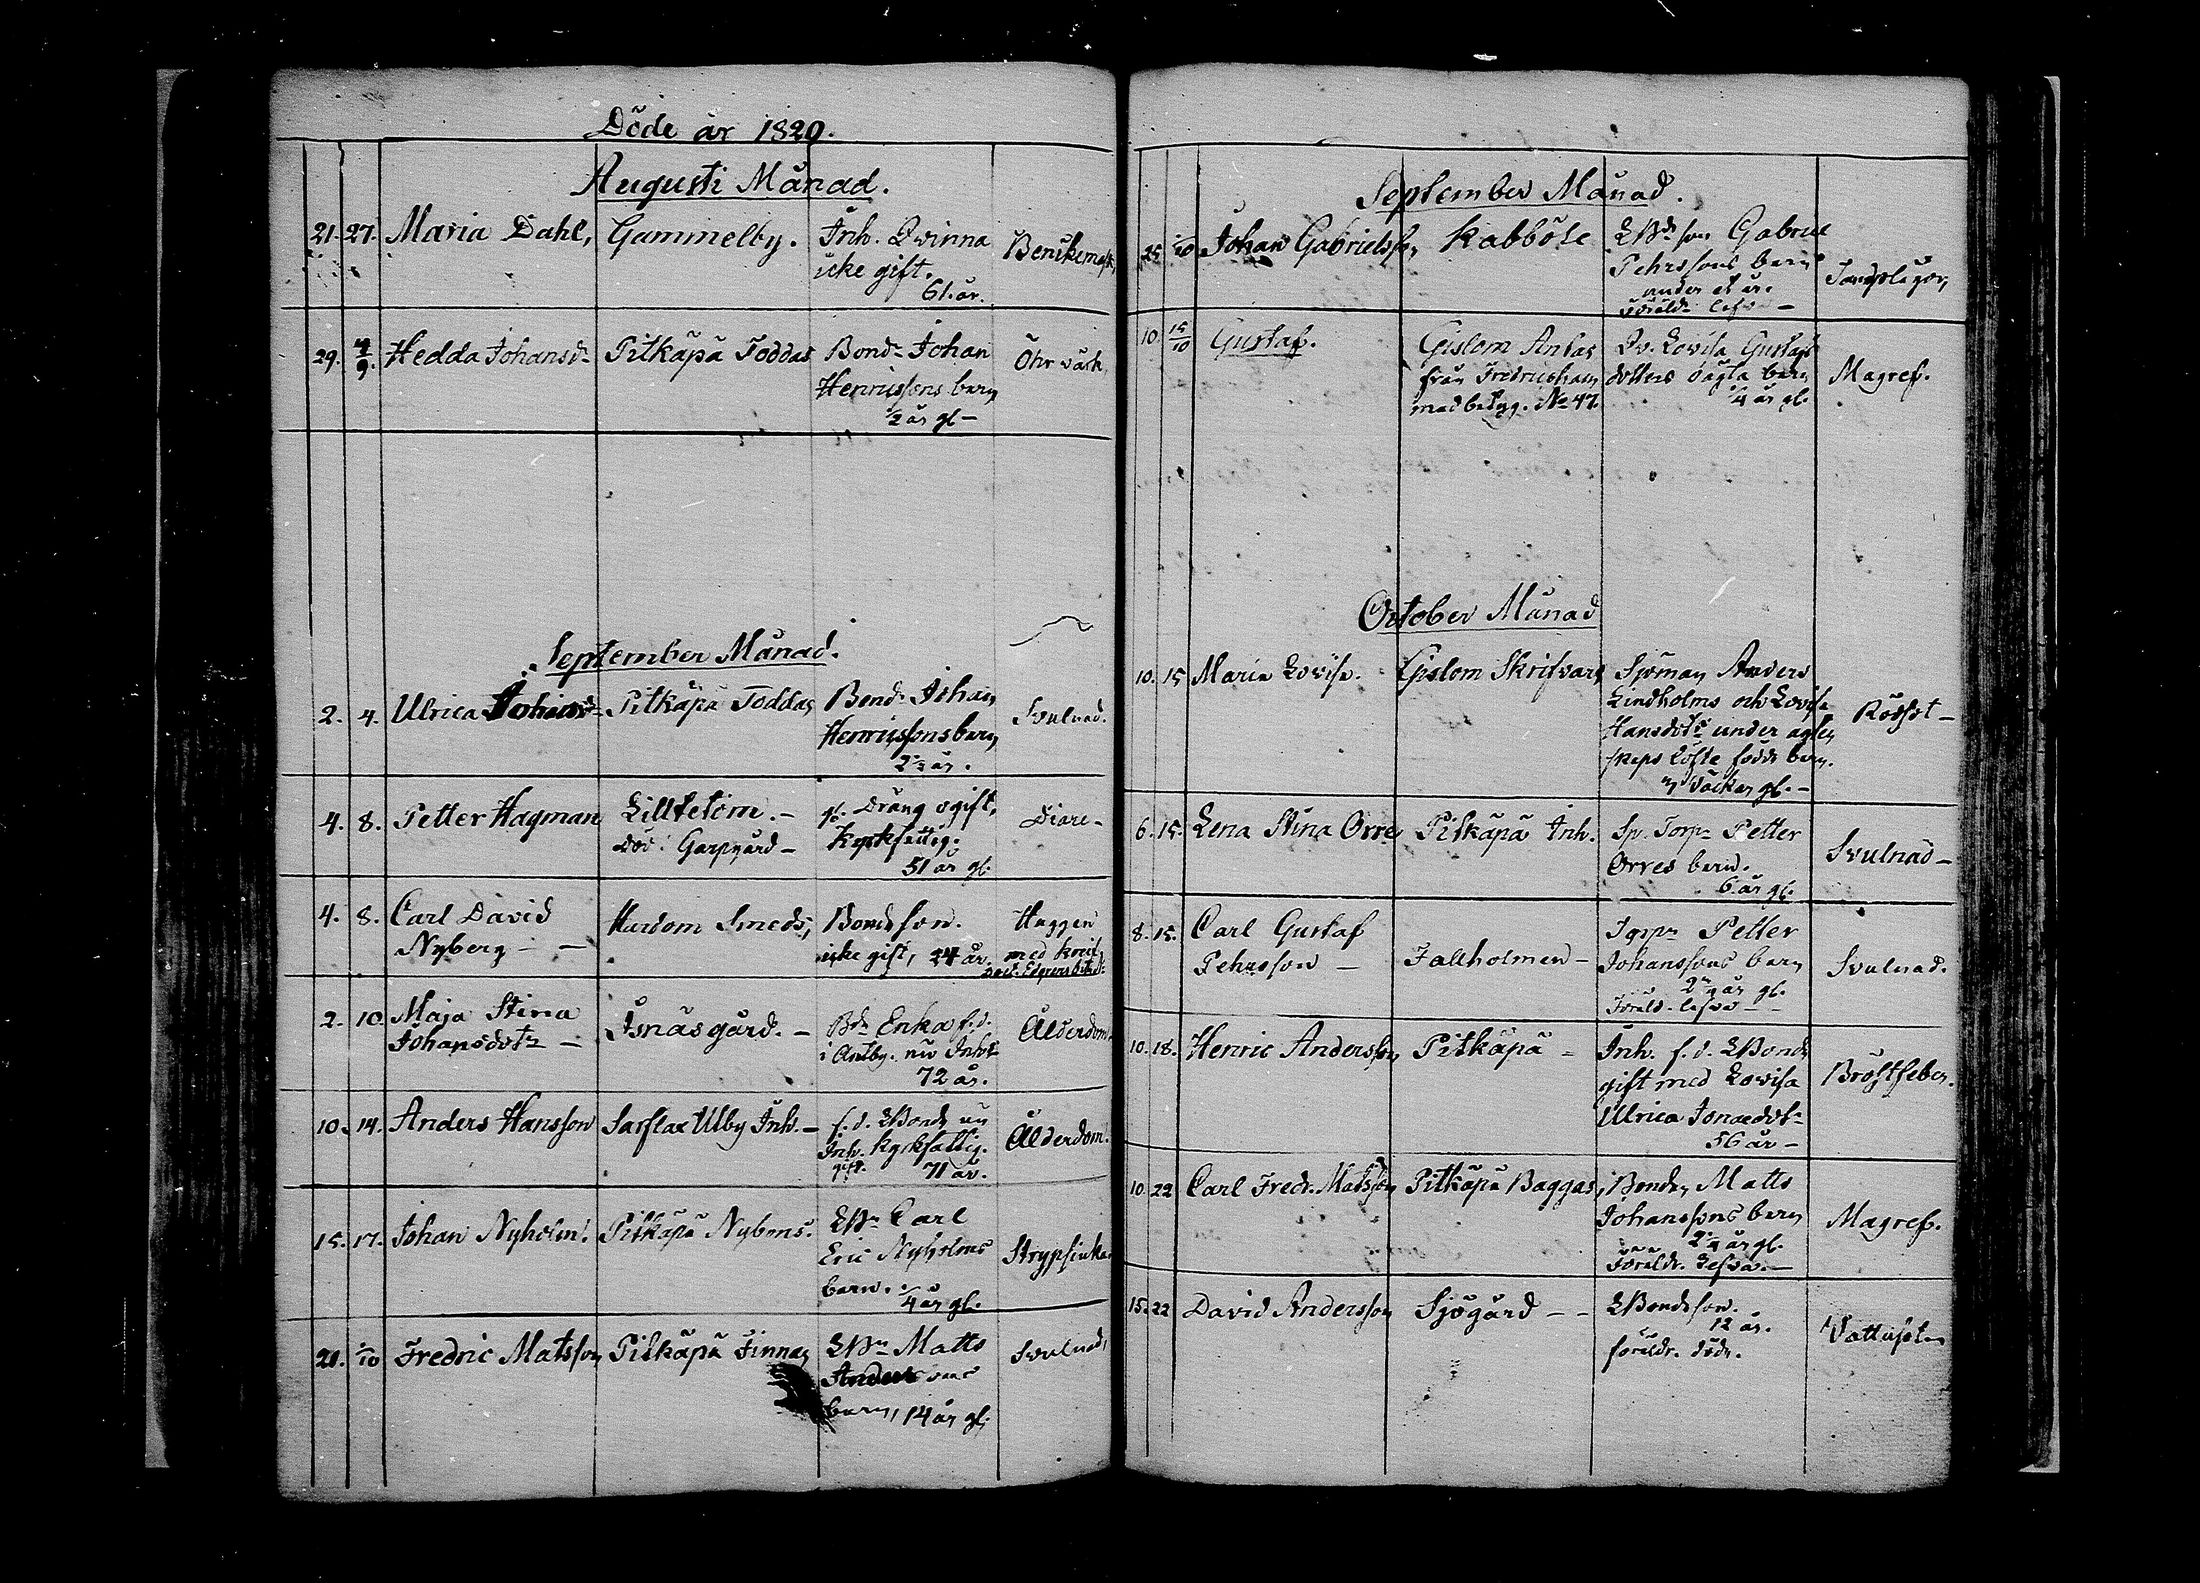 Döde år 1820.
Augusti Månad.
21. 27. Maria Dahl, Gammelby. Inh. Qvinna
icke gift.
61. år.
29. 4/9. Hedda Johansdr Pitkäpä Toddas Bond. Johan Öhrvärk
Henricssons barn
1/2 år gl –
September Månad.
2. 4. Ulrica Johansdr Pitkäpä Toddas Bond. Johan Svulnad.
Henricssons barn
2 1/2 år.
4. 8. Petter Hagman Lilltetom. – Dräng ogift, Diare –
Död i Garpgård – Kyrkfattig.
51 år gl.
4. 8. Carl David Hardom Smeds, Bondeson. Huggen
Nyberg – – icke gift, 24 år. med knif
2. 10. Maja Stina Isnäsgård. – Bd. Enka f.d. Ålderdom.
Johansdotr – i Antby. nu Inhs
72 år.
10. 14. Anders Hansson Sarflax Ulby Inh. – f.d. Bonde nu Ålderdom.
Inh. Kyrkfattig.
gift. 71 år.
15. 17. Johan Nyholm. Pitkäpä Nybons. Carl Strypsiuka
Eric Nyholms
barn. 1/4 år gl.
21. 1/10 Fredric Matsson Pitkäpä Finnas Matts Svulnad,
Anderssons
barn, 14 år gl.
September Månad.
25 1/10 Johan Gabrielsson, Kabböle son Gabriel
Pehrssons barn
under et år.
Föräldr. lefva –
10. 15/10 Gustaf. Gislom Antas Qv. Lovisa Gustafs Magref.
från Fredricshamn dotters oägta barn
med betyg. No 47. 1/4 år gl.
October Månad
10. 15 Maria Lovisa. Gislom Skrifvars Sjöman Anders Rödsot –
Lindholms och Lovisa
Hansdotr under agten
skaps löfte född barn.
Väckor gl. –
6. 15. Lena Stina Orre Pitkäpä Inh. Sp. Torpr Petter Svulnad –
Orres barn.
6 år gl.
8. 15. Carl Gustaf Torpr Petter
Pehrsson – Tallholmen – Johanssons barn Svulnad.
2 1/4 år gl.
Föräld. lefva –
10. 18. Henric Andersson Pitkäpä – Inh. f.d. Bonde Bröstfeber.
gift med Lovisa
Ulrica Jonaedotr
56 år –
10. 22 Carl Fredr. Matsson Pitkäpä Baggas, Bonden Matts Magref.
Johanssons barn
2 1/4 år gl.
Föräldr. Lefva. –
15. 22 David Andersson Sjögård – – Bondeson. Vattusot –
12 år.
föräldr. döde.